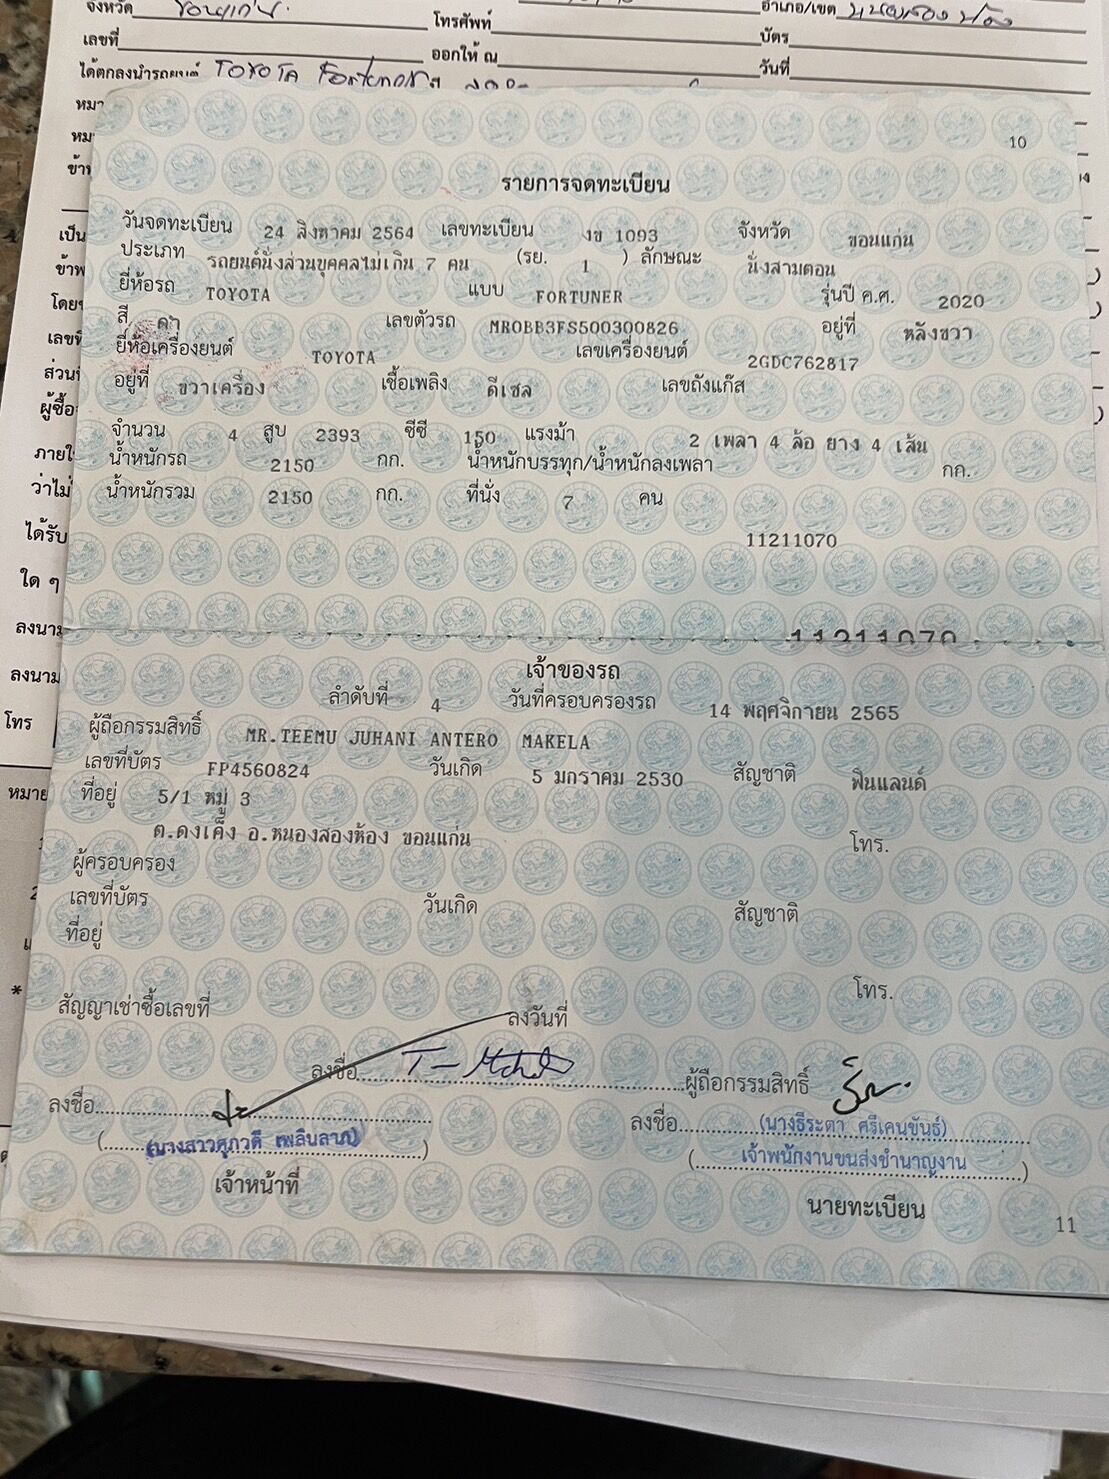 จังหวัด ขอนแก่น. อำเภอ/เขต หนองสองห้อง
โทรศัพท์
เลขที่ ออกให้ ณ บัตร
ได้ตกลงนำรถยนต์ TOYOTA วันที่
10
รายการจดทะเบียน
วันจดทะเบียน 24 สิงหาคม 2564 เลขทะเบียน งข 1093 จังหวัด ขอนแก่น
ประเภท รถยนต์นั่งส่วนบุคคลไม่เกิน 7 คน (รย. 1 ) ลักษณะ นั่งสามตอน
ยี่ห้อรถ TOYOTA แบบ FORTUNER รุ่นปี ค.ศ. 2020
สี ดำ เลขตัวรถ MR0BB3FS500300826 อยู่ที่ หลังขวา
ยี่ห้อเครื่องยนต์ TOYOTA เลขเครื่องยนต์ 2GDC762817
อยู่ที่ ขวาเครื่อง เชื้อเพลิง ดีเซล เลขถังแก๊ส
จำนวน 4 สูบ 2393 ซีซี 150 แรงม้า 2 เพลา 4 ล้อ ยาง 4 เส้น
น้ำหนักรถ 2150 กก. น้ำหนักบรรทุก/น้ำหนักลงเพลา กก.
น้ำหนักรวม 2150 กก. ที่นั่ง 7 คน
11211070
11211070
เจ้าของรถ
ลำดับที่ 4 วันที่ครอบครองรถ 14 พฤศจิกายน 2565
ผู้ถือกรรมสิทธิ์ MR.TEEMU JUHANI ANTERO MAKELA
เลขที่บัตร FP4560824 วันเกิด 5 มกราคม 2530 สัญชาติ ฟินแลนด์
ที่อยู่ 5/1 หมู่ 3
ต.ดงเค็ง อ.หนองสองห้อง ขอนแก่น โทร.
ผู้ครอบครอง
เลขที่บัตร วันเกิด สัญชาติ
ที่อยู่
โทร.
สัญญาเช่าซื้อเลขที่ ลงวันที่
ลงชื่อ ผู้ถือกรรมสิทธิ์
ลงชื่อ ลงชื่อ (นางธีระดา ศรีเคนขันธ์)
(นางสาวศุภวดี เพลินลาภ) (เจ้าพนักงานขนส่งชำนาญงาน)
เจ้าหน้าที่ นายทะเบียน
11